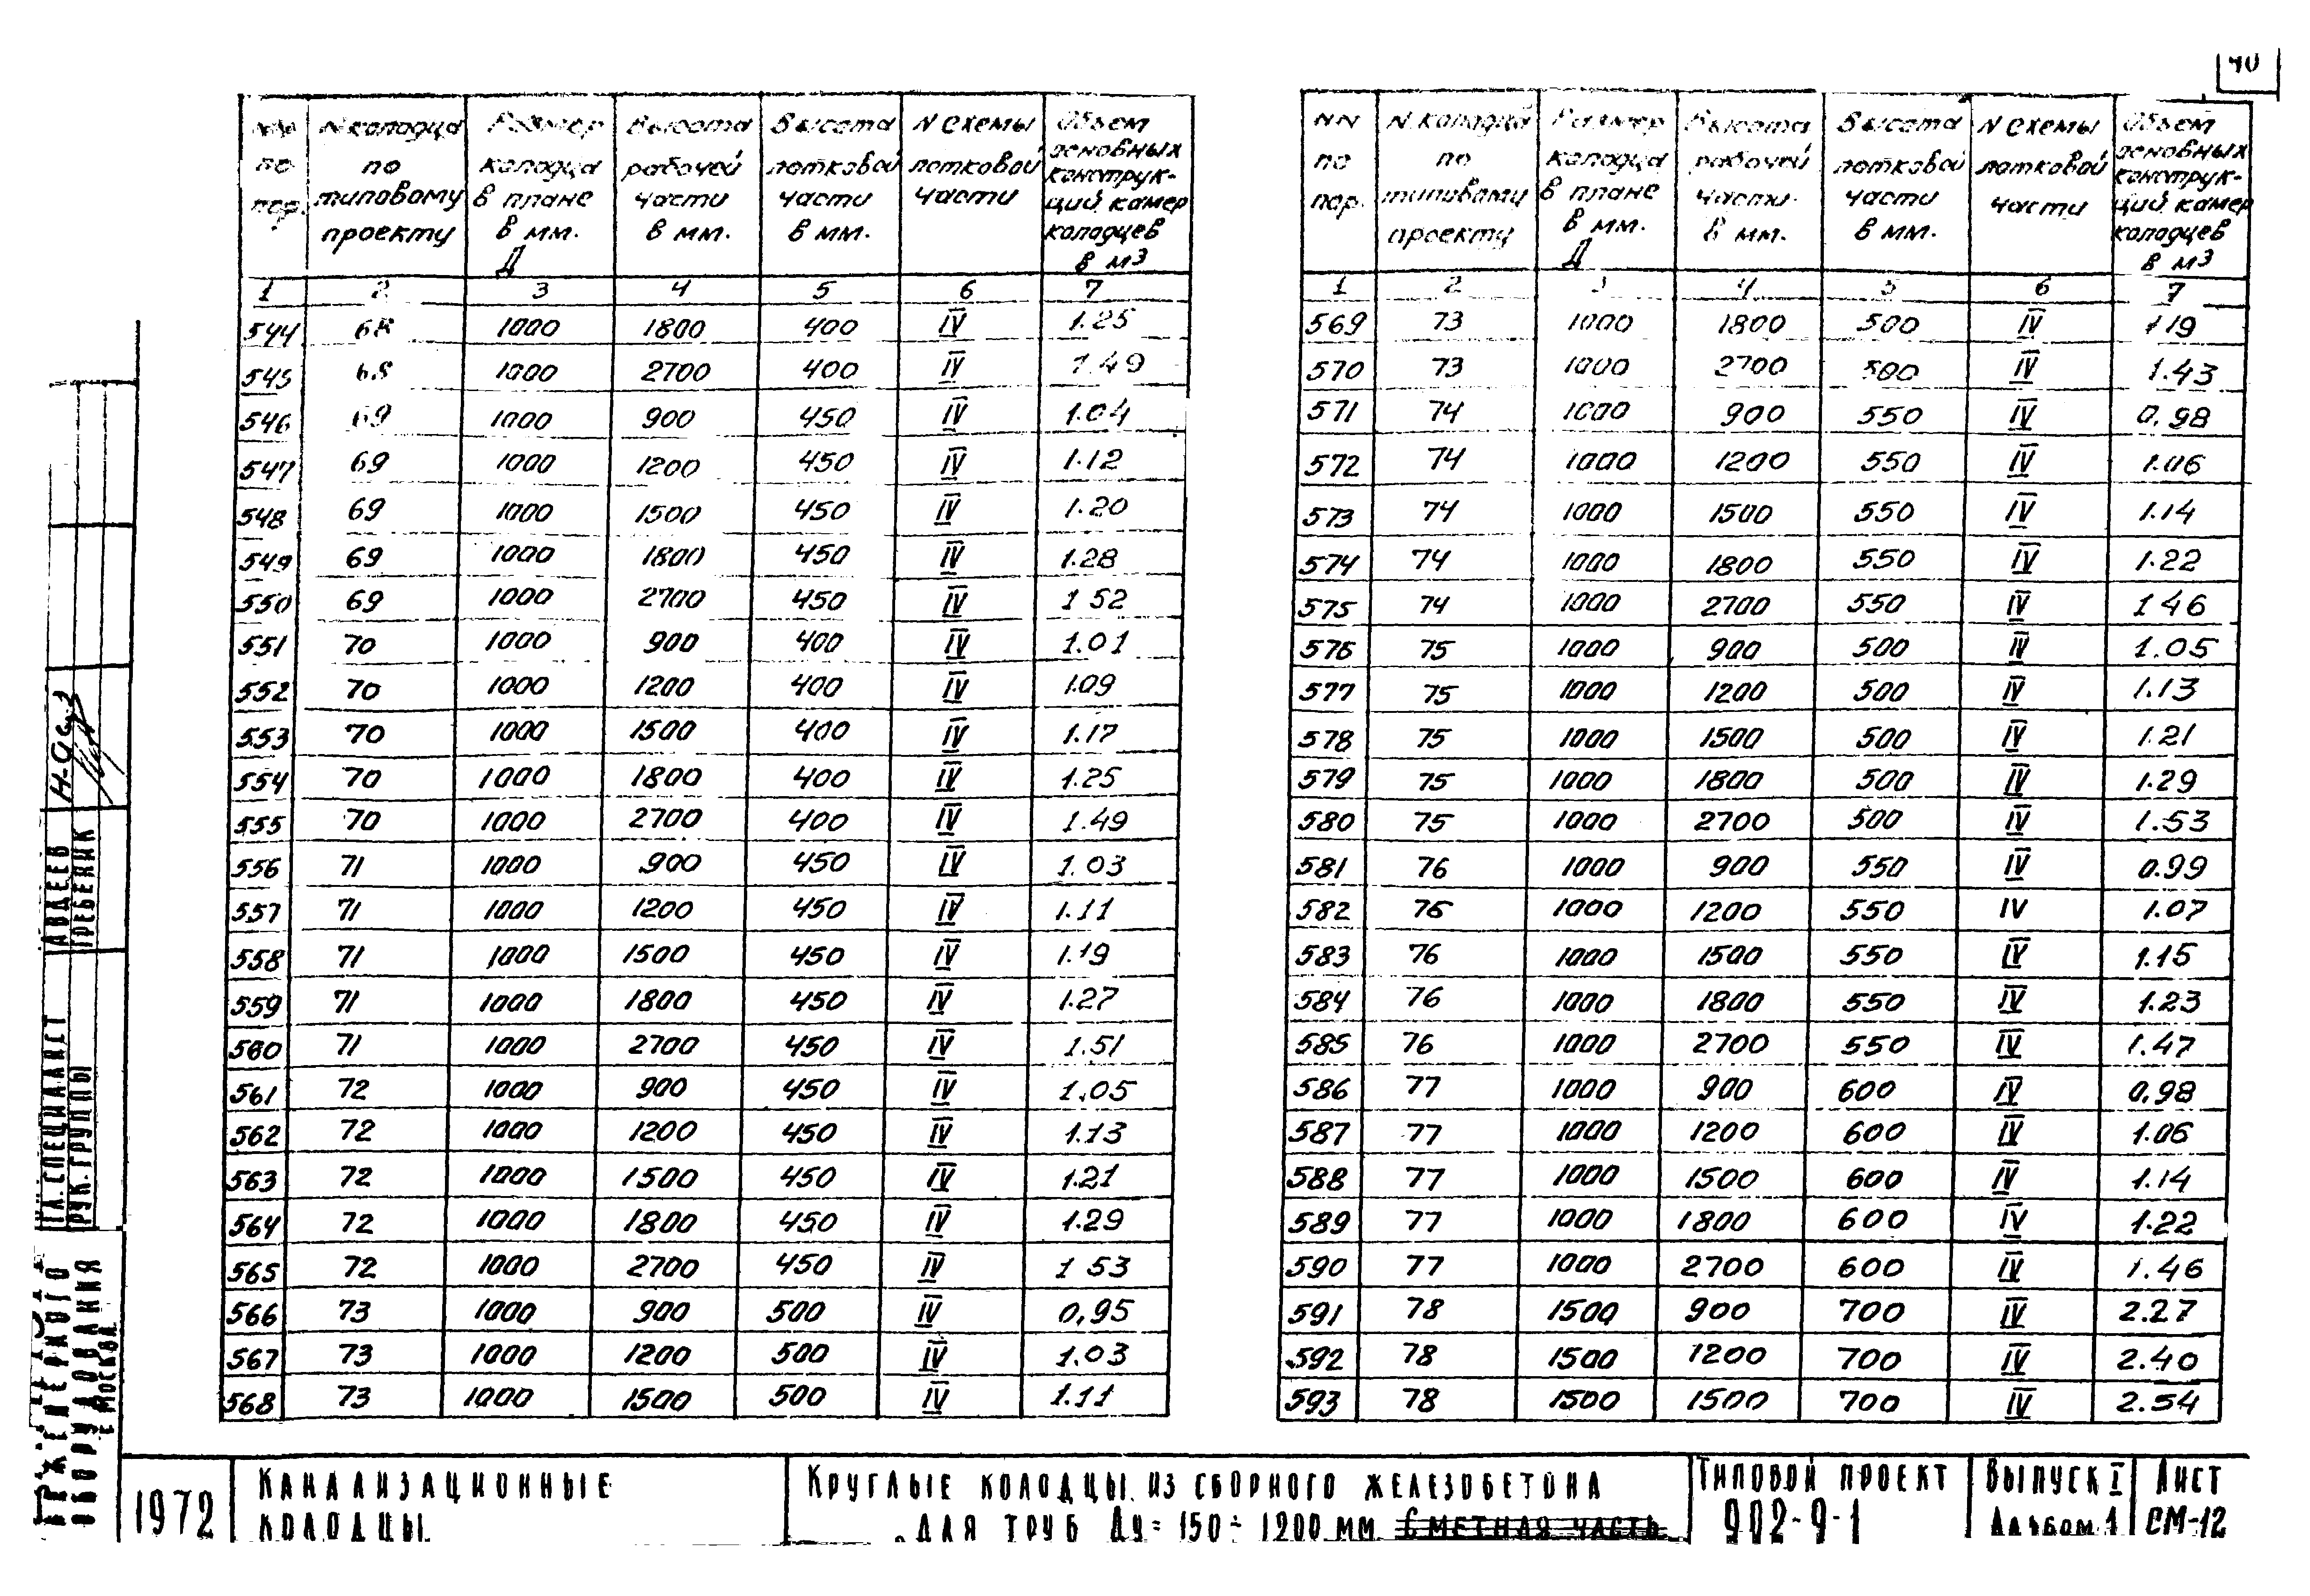 40
№№ по пор. | N колодца по типовому проекту | Размер колодца в плане в мм. Д | Высота рабочей части в мм. | Высота лотковой части в мм. | N схемы лотковой части | Объем основных конструк-ций камер колодцев в м3
1 2 3 4 5 6 7
544 68 1000 1800 400 IV 1.25
545 68 1000 2700 400 IV 1.49
546 69 1000 900 450 IV 1.04
547 69 1000 1200 450 IV 1.12
548 69 1000 1500 450 IV 1.20
549 69 1000 1800 450 IV 1.28
550 69 1000 2700 450 IV 1 52
551 70 1000 900 400 IV 1.01
552 70 1000 1200 400 IV 1.09
553 70 1000 1500 400 IV 1.17
554 70 1000 1800 400 IV 1.25
555 70 1000 2700 400 IV 1.49
556 71 1000 900 450 IV 1.03
557 71 1000 1200 450 IV 1.11
558 71 1000 1500 450 IV 1.19
559 71 1000 1800 450 IV 1.27
560 71 1000 2700 450 IV 1.51
561 72 1000 900 450 IV 1.05
562 72 1000 1200 450 IV 1.13
563 72 1000 1500 450 IV 1.21
564 72 1000 1800 450 IV 1.29
565 72 1000 2700 450 IV 1 53
566 73 1000 900 500 IV 0,95
567 73 1000 1200 500 IV 1.03
568 73 1000 1500 500 IV 1.11
NN по пор. | N колодца по типовому проекту | Размер колодца в плане в мм. Д | Высота рабочей части в мм. | Высота лотковой части в мм. | N схемы лотковой части | Объем основных конструк-ций камер колодцев в м3
1 2 3 4 5 6 7
569 73 1000 1800 500 IV 1 19
570 73 1000 2700 500 IV 1.43
571 74 1000 900 550 IV 0,98
572 74 1000 1200 550 IV 1.06
573 74 1000 1500 550 IV 1.14
574 74 1000 1800 550 IV 1.22
575 74 1000 2700 550 IV 1 46
576 75 1000 900 500 IV 1.05
577 75 1000 1200 500 IV 1.13
578 75 1000 1500 500 IV 1.21
579 75 1000 1800 500 IV 1.29
580 75 1000 2700 500 IV 1.53
581 76 1000 900 550 IV 0.99
582 76 1000 1200 550 IV 1.07
583 76 1000 1500 550 IV 1.15
584 76 1000 1800 550 IV 1.23
585 76 1000 2700 550 IV 1.47
586 77 1000 900 600 IV 0,98
587 77 1000 1200 600 IV 1.06
588 77 1000 1500 600 IV 1.14
589 77 1000 1800 600 IV 1.22
590 77 1000 2700 600 IV 1.46
591 78 1500 900 700 IV 2.27
592 78 1500 1200 700 IV 2.40
593 78 1500 1500 700 IV 2.54
ГЛ. СПЕЦИАЛИСТ АВДЕЕВ
РУК. ГРУППЫ ГРЕБЕНИК
ИНЖЕНЕРНОГО
ОБОРУДОВАНИЯ
Г. МОСКВА
1972
КАНАЛИЗАЦИОННЫЕ
КОЛОДЦЫ.
КРУГЛЫЕ КОЛОДЦЫ ИЗ СБОРНОГО ЖЕЛЕЗОБЕТОНА
ДЛЯ ТРУБ ДУ=150÷1200 ММ СМЕТНАЯ ЧАСТЬ
ТИПОВОЙ ПРОЕКТ
902-9-1
ВЫПУСК I
АЛЬБОМ 1
ЛИСТ
СМ-12